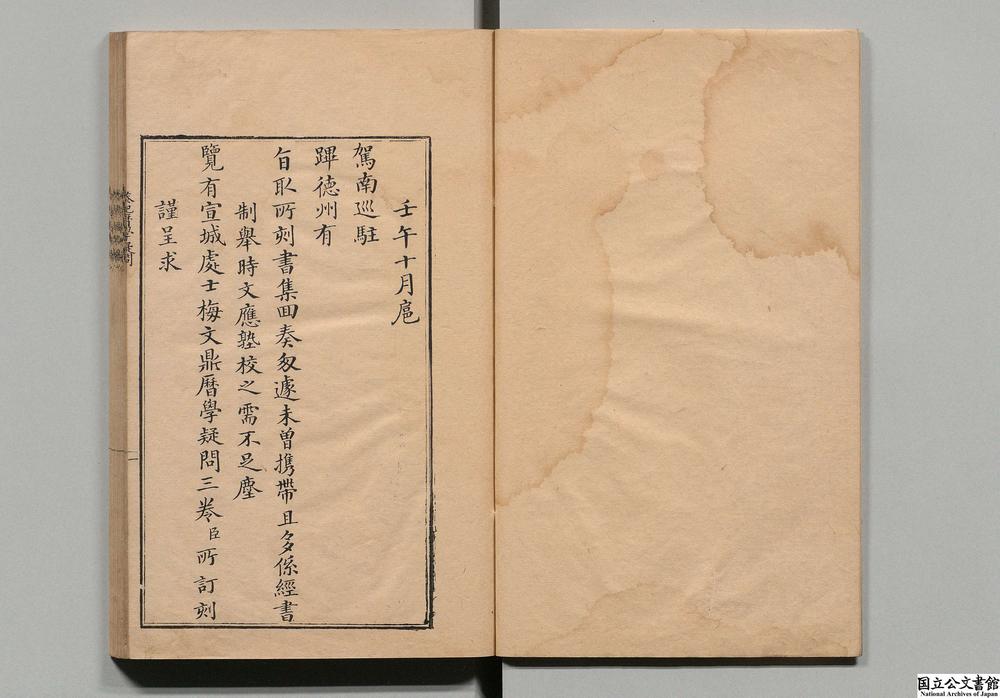 壬午十月扈
駕南廵駐
蹕德州有
旨取所刻書集回奏匆遽未曾携帶且多係經書
制舉時文應塾校之需不足塵
覽有宣城處士梅文鼎曆學疑問三卷臣所訂刻
謹呈求
国立公文書館
National Archives of Japan